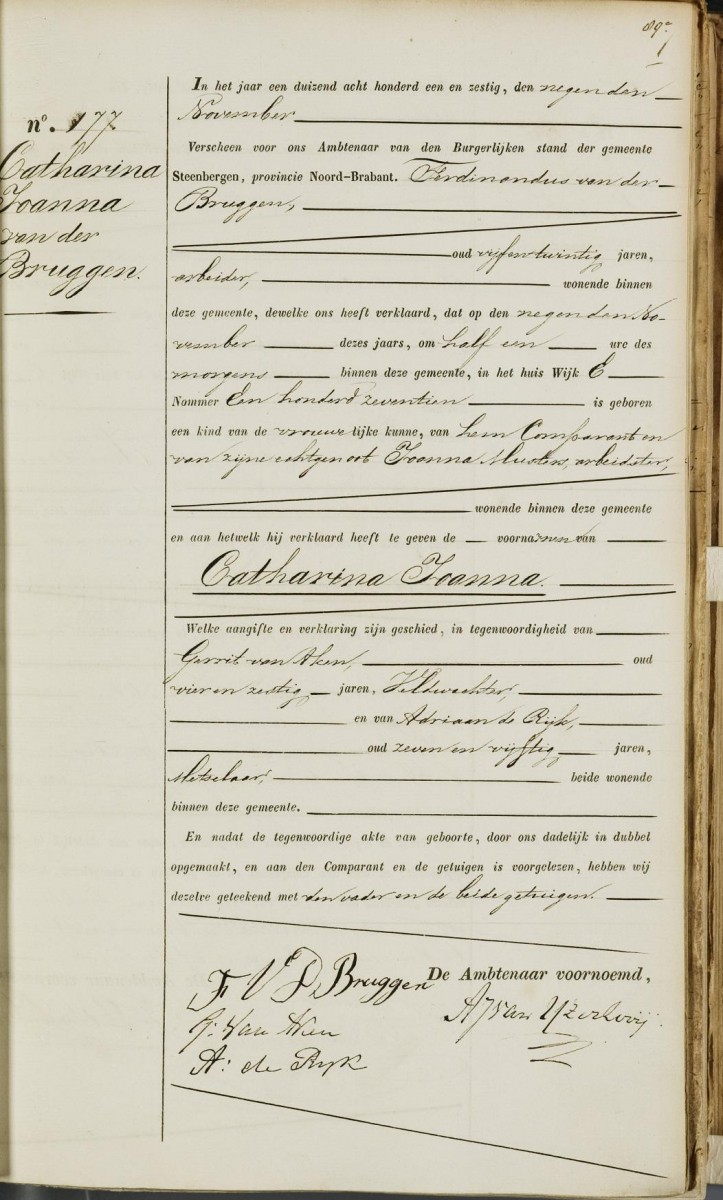 89e
nº. 177
Catharina
Joanna
van der
Bruggen.
In het jaar een duizend acht honderd een en zestig, den negenden
November
Verscheen voor ons Ambtenaar van den Burgerlijken stand der gemeente
Steenbergen, provincie Noord-Brabant. Ferdinandus van der
Bruggen,
oud vijf en twintig jaren,
arbeider, wonende binnen
deze gemeente, dewelke ons heeft verklaard, dat op den negenden No-
vember dezes jaars, om half een ure des
morgens binnen deze gemeente, in het huis Wijk E
Nommer Een honderd zeventien is geboren
een kind van de vrouwelijke kunne, van hem Comparant en
van zijne echtgenoot Joanna Musters, arbeidster,
wonende binnen deze gemeente
en aan hetwelk hij verklaard heeft te geven de voornamen van
Catharina Joanna.
Welke aangifte en verklaring zijn geschied, in tegenwoordigheid van
Gerrit van Aken, oud
vier en zestig jaren, Veldwachter,
en van Adriaan de Rijk,
oud zeven en vijftig jaren,
Metselaar, beide wonende
binnen deze gemeente.
En nadat de tegenwoordige akte van geboorte, door ons dadelijk in dubbel
opgemaakt, en aan den Comparant en de getuigen is voorgelezen, hebben wij
dezelve geteekend met den vader en de beide getuigen.
F V D Bruggen De Ambtenaar voornoemd,
G: van Aken
A: de Rijk